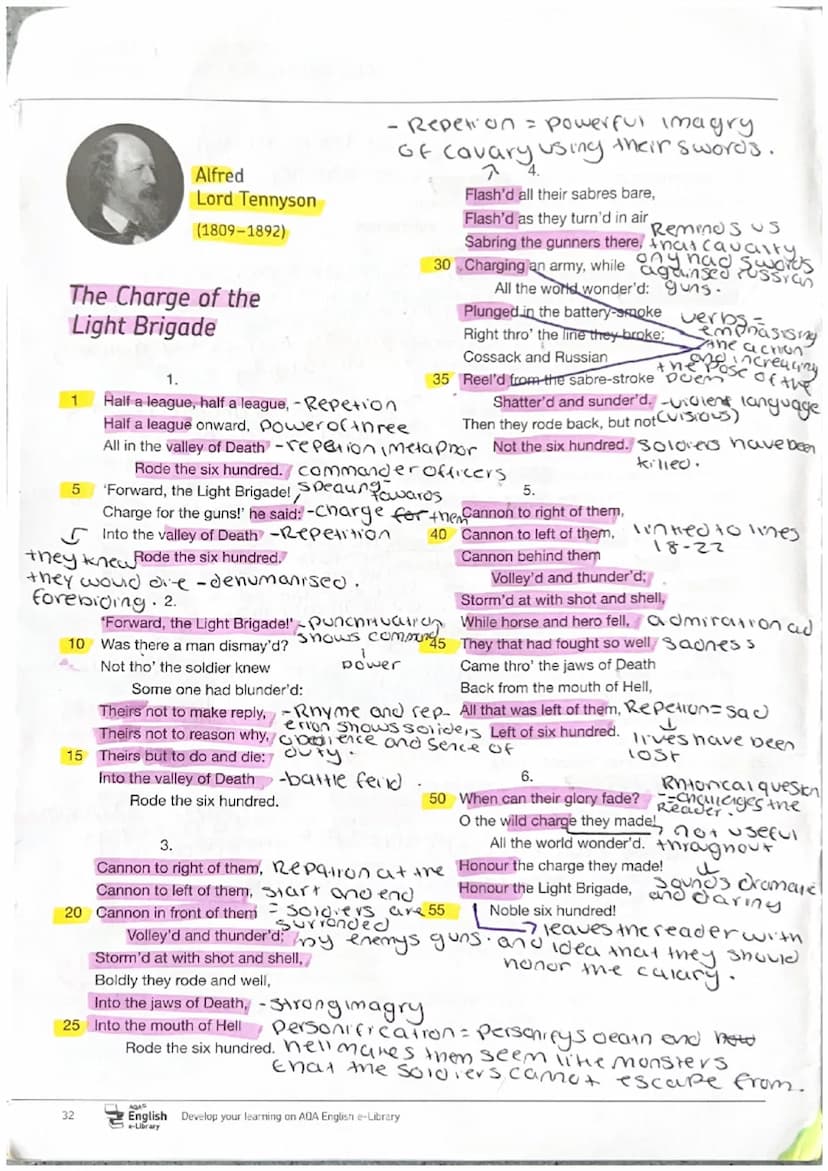 - Repetion = powerful imagry
of cavary using their swords.
Alfred
Lord Tennyson
(1809–1892)
The Charge of the
Light Brigade
1.
1 Half a league, half a league, - Repetion
Half a league onward, power of three
All in the valley of Death - repetion imetapnor
Rode the six hundred. commander officers
5 'Forward, the Light Brigade!
Charge for the guns!' he said: - charge for them
speaking towards
Into the valley of Death - Repetition
Rode the six hundred.
they knew
they would die - dehumanised.
forebiding.
2.
'Forward, the Light Brigade!' - punchtuation
shows command
power
10 Was there a man dismay'd?
Not tho' the soldier knew
Some one had blunder'd:
Theirs not to make reply, - Rhyme and rep-
Theirs not to reason why, etion shows soliders
obedience and sence of
15 Theirs but to do and die: duty.
Into the valley of Death - battle feild.
Rode the six hundred.
3.
Cannon to right of them, Repation at the
Cannon to left of them, start and end
20 Cannon in front of them = soldiers are
surronded
Volley'd and thunder'd; by enemys guns.
Storm'd at with shot and shell,
Boldly they rode and well,
Into the jaws of Death, - strong imagry
25 Into the mouth of Hell personification = personifys death and how
Rode the six hundred. hell makes them seem like monsters
that the soldiers cannot escape from.
4.
Flash'd all their sabres bare,
Flash'd as they turn'd in air
Sabring the gunners there,
Reminds us
that cavalry
ony had swords
againsed russian
guns.
30 Charging an army, while
All the world wonder'd:
Plunged in the battery-smoke
Right thro' the line they broke;
Cossack and Russian
verbs =
emphasising
the action
and increacing
the pose of the
poem
35 Reel'd from the sabre-stroke
Shatter'd and sunder'd. - violent language
Then they rode back, but not (visious)
Not the six hundred. soldiers have been
killed.
5.
Cannon to right of them,
40 Cannon to left of them, linked to lines
18-22
Cannon behind them
Volley'd and thunder'd;
Storm'd at with shot and shell,
While horse and hero fell, admiration ad
45 They that had fought so well sadness
Came thro' the jaws of Death
Back from the mouth of Hell,
All that was left of them, Repetion = sad
Left of six hundred. lives have been
lost
6.
50 When can their glory fade?
Rhtorical question
- challenges the
Reader.
O the wild charge they made! not useful
All the world wonder'd. throughout
Honour the charge they made!
Honour the Light Brigade,
sounds dramatic
and daring
55 Noble six hundred!
leaves the reader with
and idea that they should
honor the calary.
32
AQA
English
e-Library
Develop your learning on AQA English e-Library